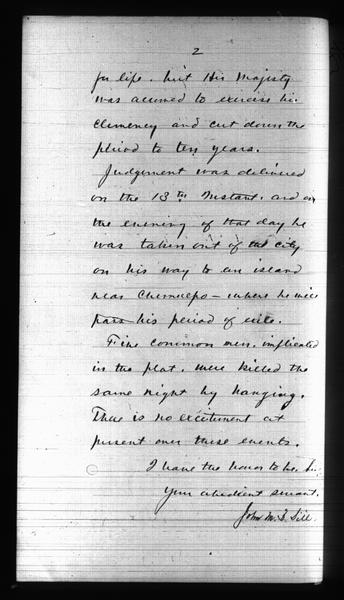 2
for life. but His Majesty
was assumed to exercise his
clemency and cut down the
period to ten years.
Judgement was delivered
on the 13th Instant. and on
the evening of that day he
was taken out of the city
on his way to an island
near Chemulpo - where he will
pass his period of exile.
Five common men, implicated
in the plot, were killed the
same night by hanging.
There is no excitement at
present over these events.
I have the honor to be, Sir,
Your obedient servant,
John M. B. Sill.